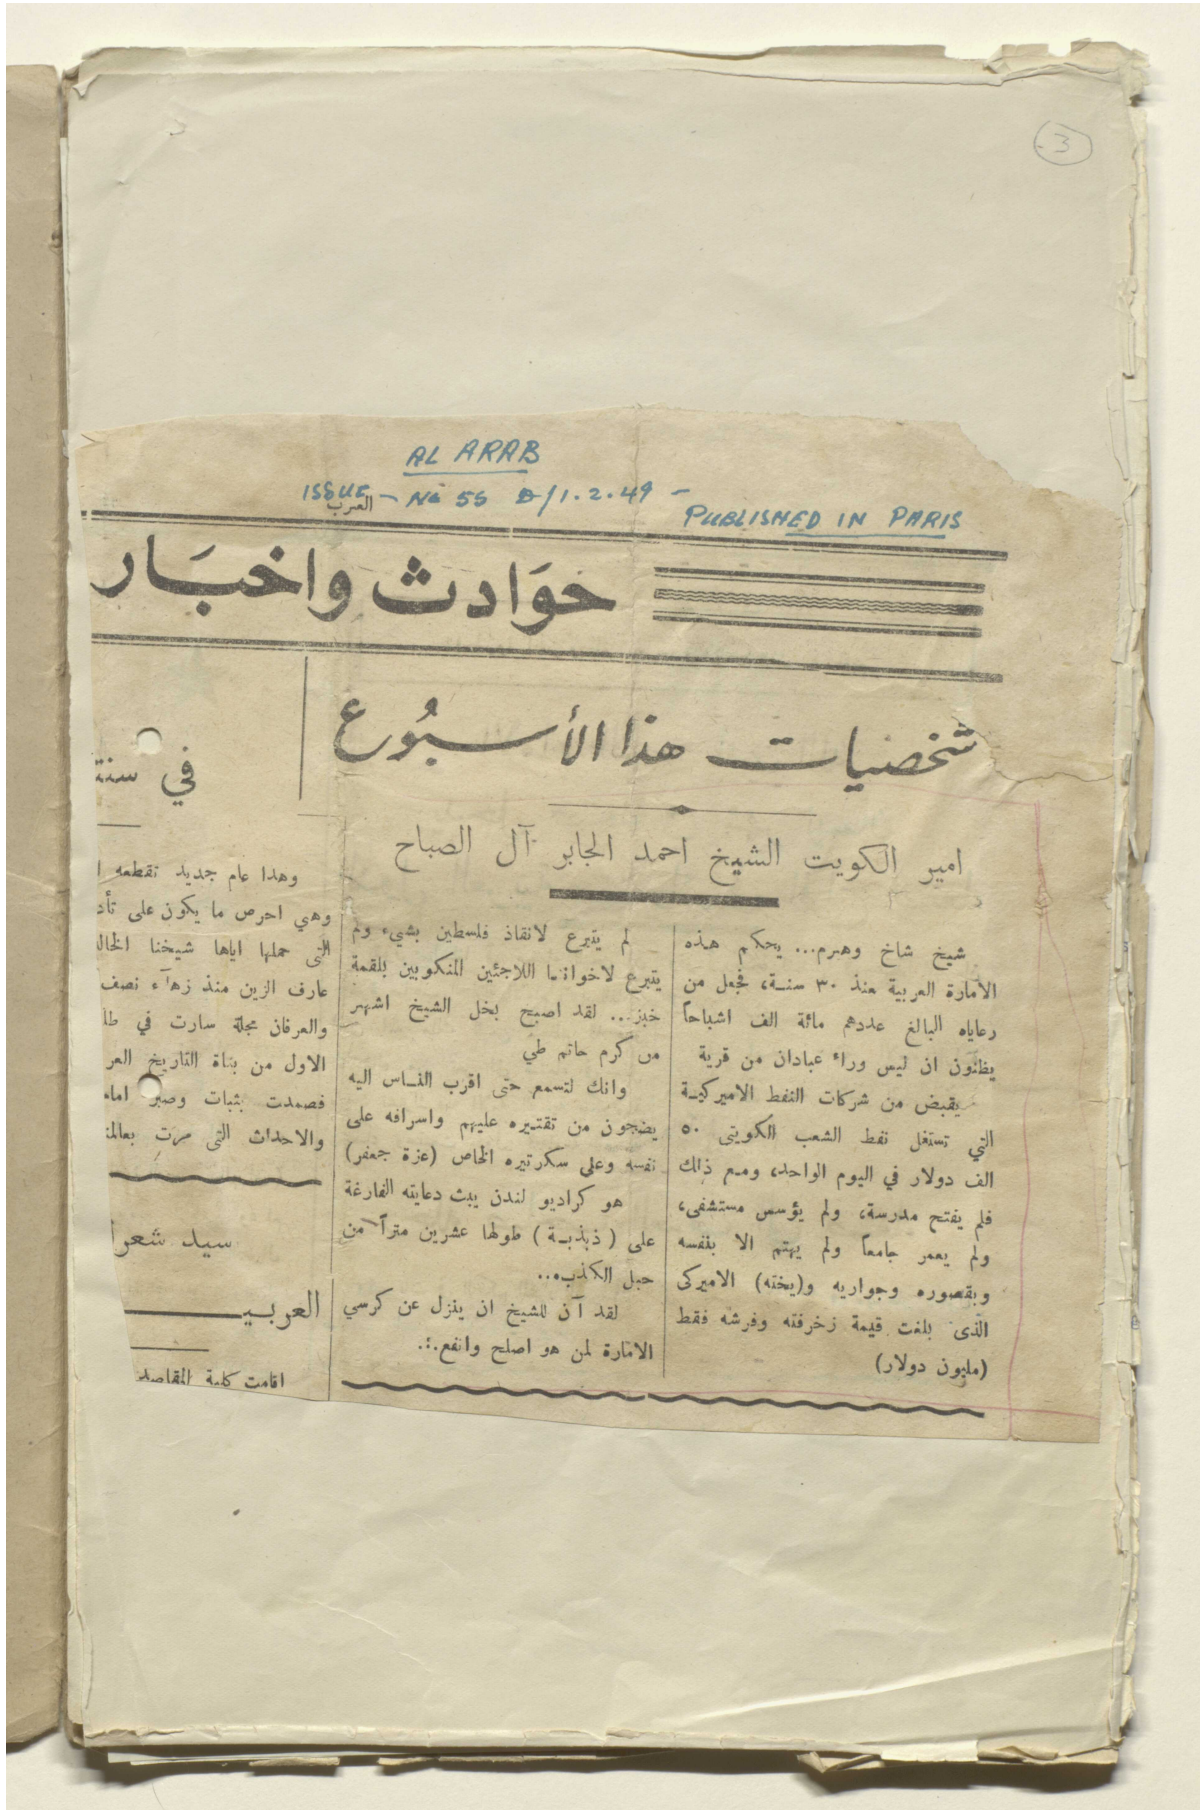 3
AL ARAB
ISSUE - No 55 D/1.2.49 -
العرب
PUBLISHED IN PARIS
حوادث واخبار
شخصيات هذا الأسبوع
امير الكويت الشيخ احمد الجابر آل الصباح
شيخ شاخ وهرم... يحكم هذه
الامارة العربية منذ ٣٠ سنة، فجعل من
رعاياه البالغ عددهم مائة الف اشباحاً
يظنون ان ليس وراء عبادان من قرية
يقبض من شركات النفط الاميركية
التي تستغل نفط الشعب الكويتى ٥٠
الف دولار في اليوم الواحد، ومع ذلك
فلم يفتح مدرسة، ولم يؤسس مستشفى،
ولم يعمر جامعاً ولم يهتم الا بنفسه
وبقصوره وجواريه و(يخته) الاميركى
الذى بلغت قيمة زخرفته وفرشه فقط
(مليون دولار)
لم يتبرع لانقاذ فلسطين بشيء ولم
يتبرع لاخواننا اللاجئين المنكوبين بلقمة
خبز... لقد اصبح بخل الشيخ اشهر
من كرم حاتم طي
وانك لتسمع حتى اقرب الناس اليه
يضجون من تقتيره عليهم واسرافه على
نفسه وعلى سكرتيره الخاص (عزة جعفر)
هو كراديو لندن يبث دعايته الفارغة
على (ذبذبة) طولها عشرين متراً من
حبل الكذب..
لقد آن للشيخ ان ينزل عن كرسي
الامارة لمن هو اصلح وانفع.:.
في سنتة
وهذا عام جديد تقطعه ا
وهي احرص ما يكون على تأد
التى حملها اياها شيخنا الخال
عارف الزين منذ زهاء نصف
والعرفان مجلة سارت في طا
الاول من بناة التاريخ العر
فصمدت بثبات وصبر امام
والاحداث التى مرت بعالمن
سيد شعرا
العربيـ
اقامت كلية المقاصد